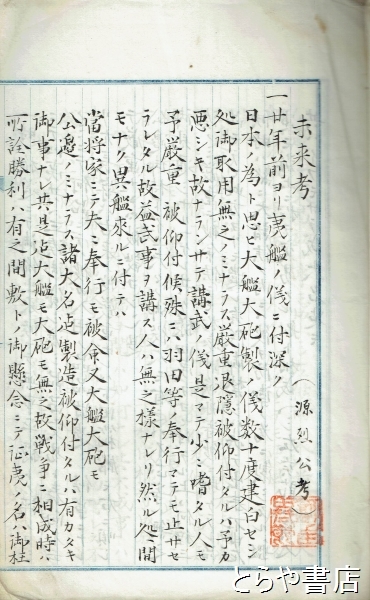 未来考
（源烈公考）
一廿年前ヨリ夷艦ノ儀ニ付深ク
日本ノ為ト思ヒ大艦大砲製ノ儀数十度建白セシ
処御取用無之ノミナラス厳重退隠被仰付タルハ予カ
悪シキ故ナランサテ講武ノ儀是マテ少ニ嗜タル人モ
予厳重被仰付候殊ニハ羽田等奉行マテモ止サセ
ラレタル故益武事ヲ講ス人ハ無之様ナレリ然ル処ニ間
モナク異艦来ルニ付テハ
当将家ニテ夫ニ奉行モ被命又大艦大砲モ
公邉ノミナラス諸大名迠製造被仰付タルハ有カタキ
御事ナレ共是迠大艦モ大砲モ無之故戦争ニ相成時ハ
所詮勝利ハ有之間敷トノ御懸念ニテ征夷ノ名ハ御柱
とらや書店